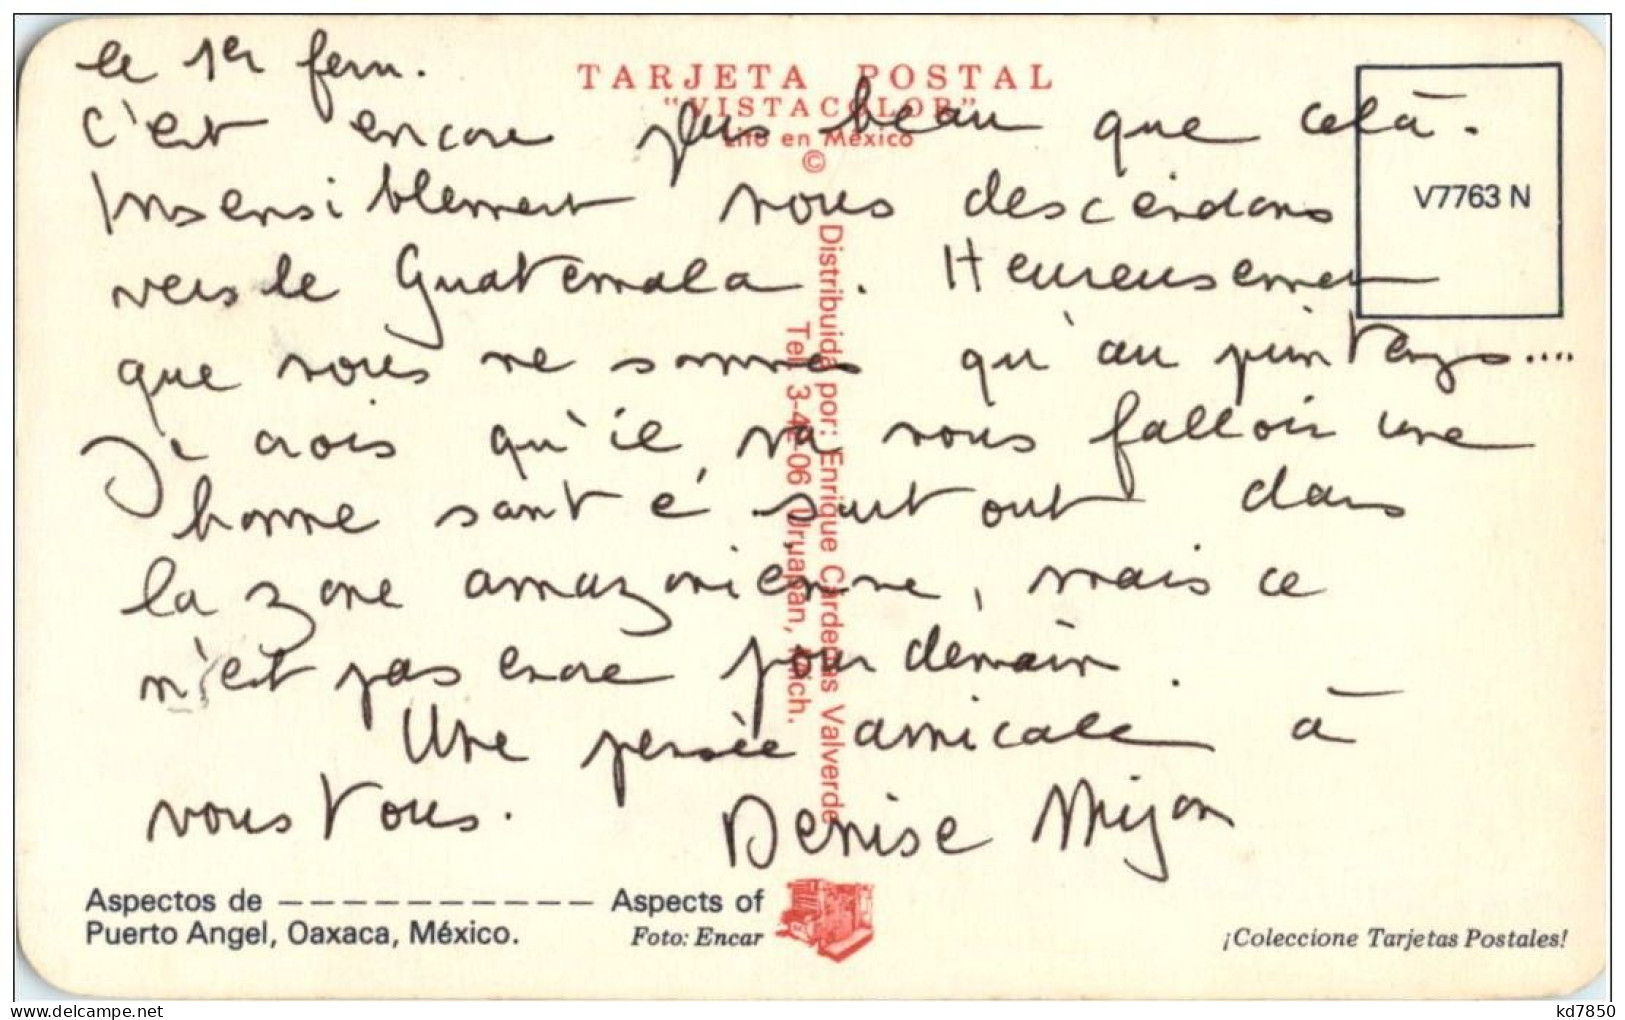 le 1er fevr.
TARJETA POSTAL
"VISTACOLOR"
Lito en México
©
c'est encore plus beau que celà.
Insensiblement nous descendons
V7763 N
vers le Guatemala. Heureusement
que nous ne sommes qu'au printemps....
Je crois qu'il va nous falloir une
bonne santé surtout dans
la zone amazonienne, mais ce
n'est pas encore pour demain.
Une pensée amicale à
vous tous. Denise
Distribuida por: Enrique Cárdenas Valverde
Tel. 3-42-06 Uruapan, Mich.
Aspectos de ---------- Aspects of
Puerto Angel, Oaxaca, México. Foto: Encar
¡Coleccione Tarjetas Postales!
kd7850